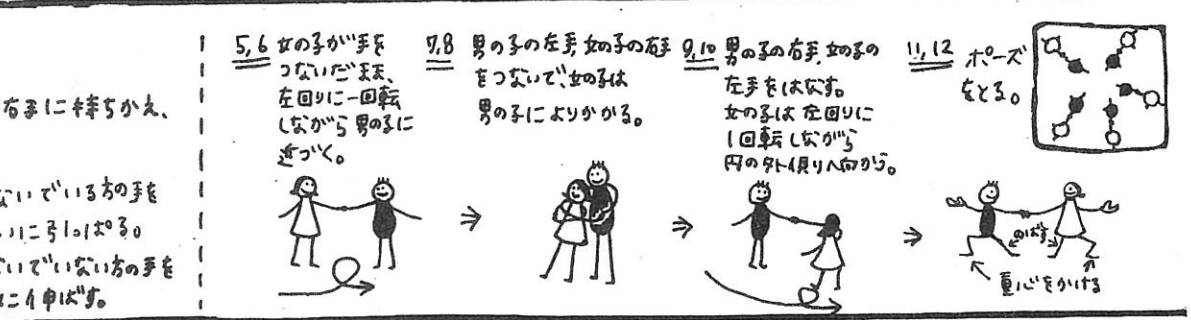 右手に持ちかえ、
ないでいる方の手を
いに引っぱる。
ないでいない方の手を
に伸ばす。
5,6 女の子が手を
つないだまま、
左回りに一回転
しながら男の子に
近づく。
7,8 男の子の左手、女の子の右手
をつないで、女の子は
男の子によりかかる。
9,10 男の子の右手、女の子の
左手をはなす。
女の子は左回りに
1回転しながら
円の外側りへ向かう。
11,12 ポーズ
をとる。
のばす
重心をかける